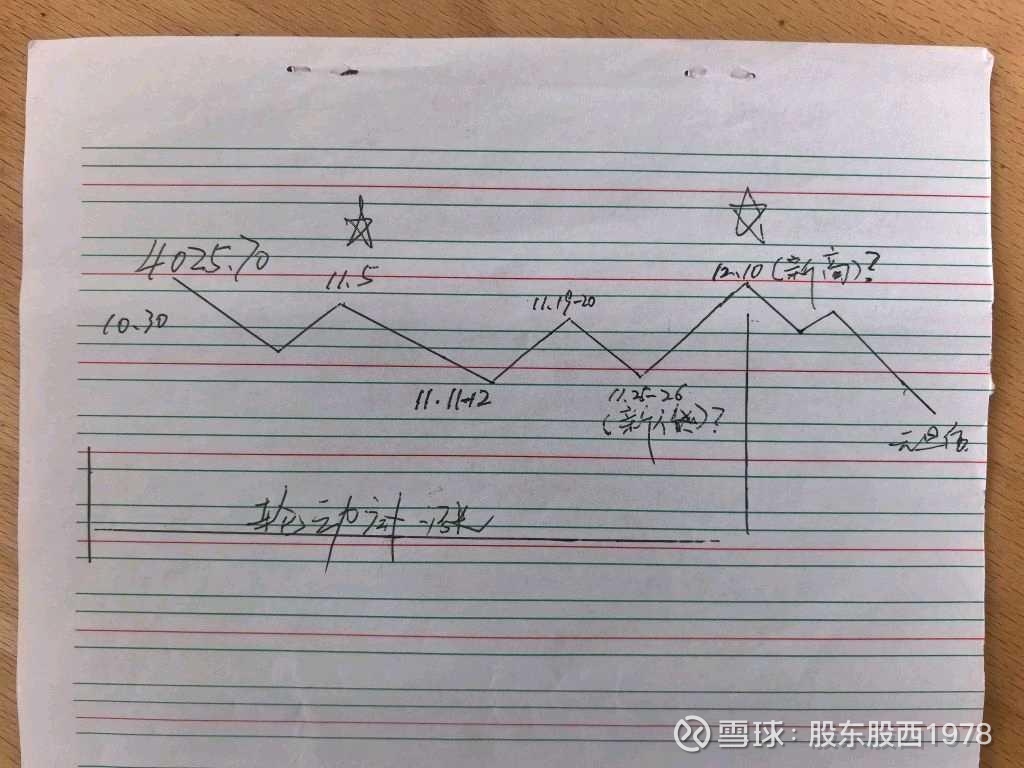 4025.70
10.30
11.5
11.11-12
11.19-20
11.25-26
(新低)?
12.10(新高)?
元旦后
轮动补涨
雪球:股东股西1978